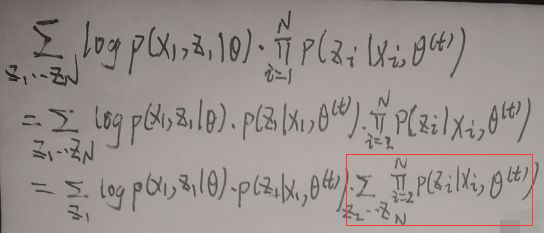 ∑_{z₁⋯z_N} log p(x₁,z₁|θ)·∏_{i=1}^{N} P(z_i|x_i,θ^{(t)})
=∑_{z₁⋯z_N} log p(x₁,z₁|θ)·p(z₁|x₁,θ^{(t)})·∏_{i=2}^{N} P(z_i|x_i,θ^{(t)})
=∑_{z₁} log p(x₁,z₁|θ)·p(z₁|x₁,θ^{(t)})·∑_{z₂⋯z_N} ∏_{i=2}^{N} p(z_i|x_i,θ^{(t)})